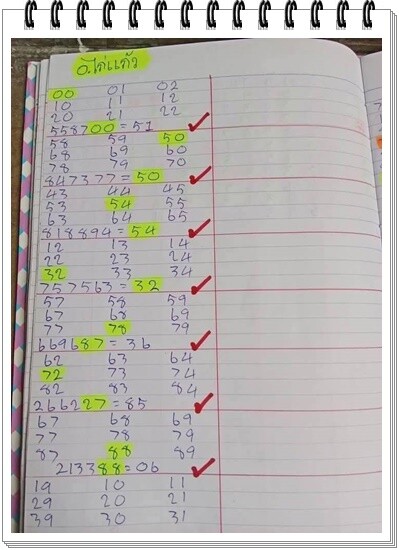 อ.ไก่แก้ว
00 01 02
10 11 12
20 21 22
558700=51
58 59 50
68 69 60
78 79 70
847377=50
43 44 45
53 54 55
63 64 65
818894=54
12 13 14
22 23 24
32 33 34
757563=32
57 58 59
67 68 69
77 78 79
669687=36
62 63 64
72 73 74
82 83 84
266227=85
67 68 69
77 78 79
87 88 89
213388=06
19 10 11
29 20 21
39 30 31